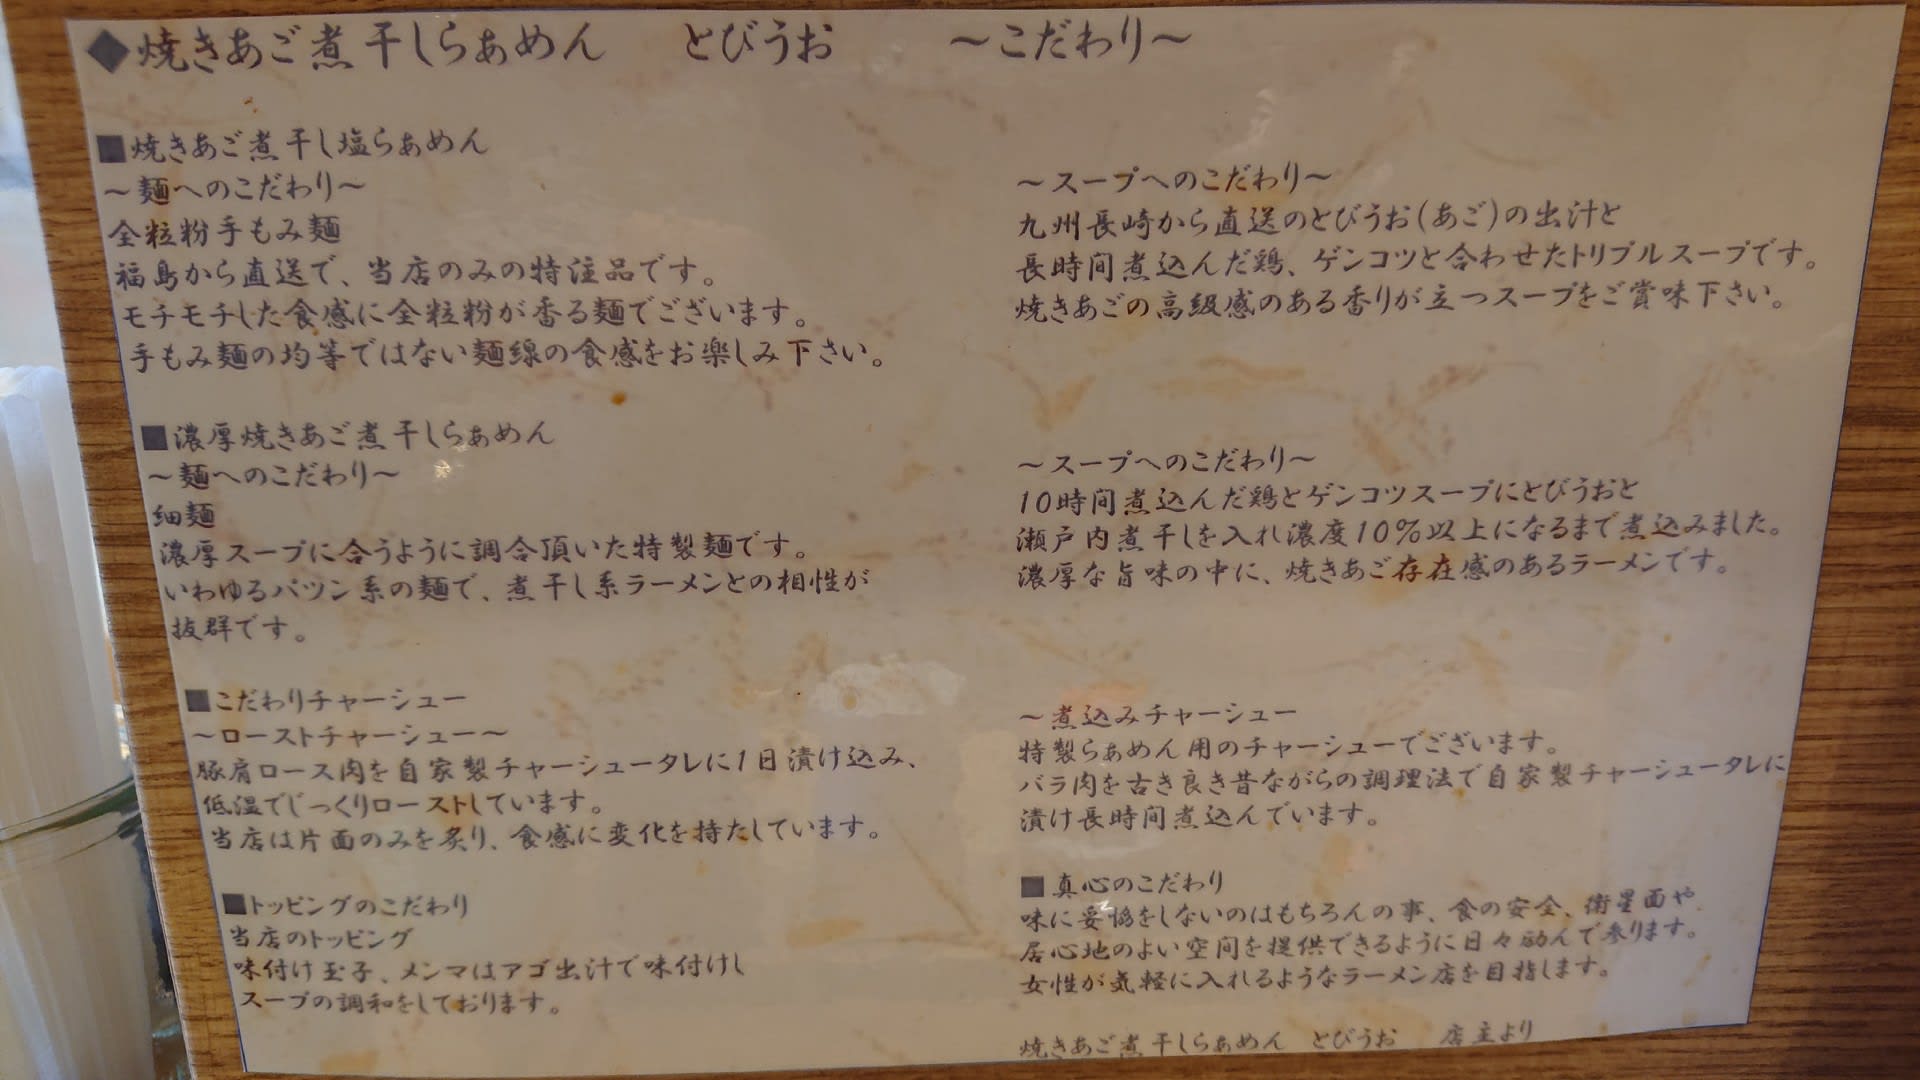 ◆焼きあご煮干しらぁめん　とびうお　～こだわり～
■焼きあご煮干し塩らぁめん
～麺へのこだわり～
全粒粉手もみ麺
福島から直送で、当店のみの特注品です。
モチモチした食感に全粒粉が香る麺でございます。
手もみ麺の均等ではない麺線の食感をお楽しみ下さい。
～スープへのこだわり～
九州長崎から直送のとびうお(あご)の出汁と
長時間煮込んだ鶏、ゲンコツと合わせたトリプルスープです。
焼きあごの高級感のある香りが立つスープをご賞味下さい。
■濃厚焼きあご煮干しらぁめん
～麺へのこだわり～
細麺
濃厚スープに合うように調合頂いた特製麺です。
いわゆるパツン系の麺で、煮干し系ラーメンとの相性が
抜群です。
～スープへのこだわり～
10時間煮込んだ鶏とゲンコツスープにとびうおと
瀬戸内煮干しを入れ濃度10%以上になるまで煮込みました。
濃厚な旨味の中に、焼きあご存在感のあるラーメンです。
■こだわりチャーシュー
～ローストチャーシュー～
豚肩ロース肉を自家製チャーシュータレに1日漬け込み、
低温でじっくりローストしています。
当店は片面のみを炙り、食感に変化を持たしています。
～煮込みチャーシュー
特製らぁめん用のチャーシューでございます。
バラ肉を古き良き昔ながらの調理法で自家製チャーシュータレに
漬け長時間煮込んでいます。
■トッピングのこだわり
当店のトッピング
味付け玉子、メンマはアゴ出汁で味付けし
スープの調和をしております。
■真心のこだわり
味に妥協をしないのはもちろんの事、食の安全、衛星面や
居心地のよい空間を提供できるように日々励んで参ります。
女性が気軽に入れるようなラーメン店を目指します。
焼きあご煮干しらぁめん　とびうお　店主より